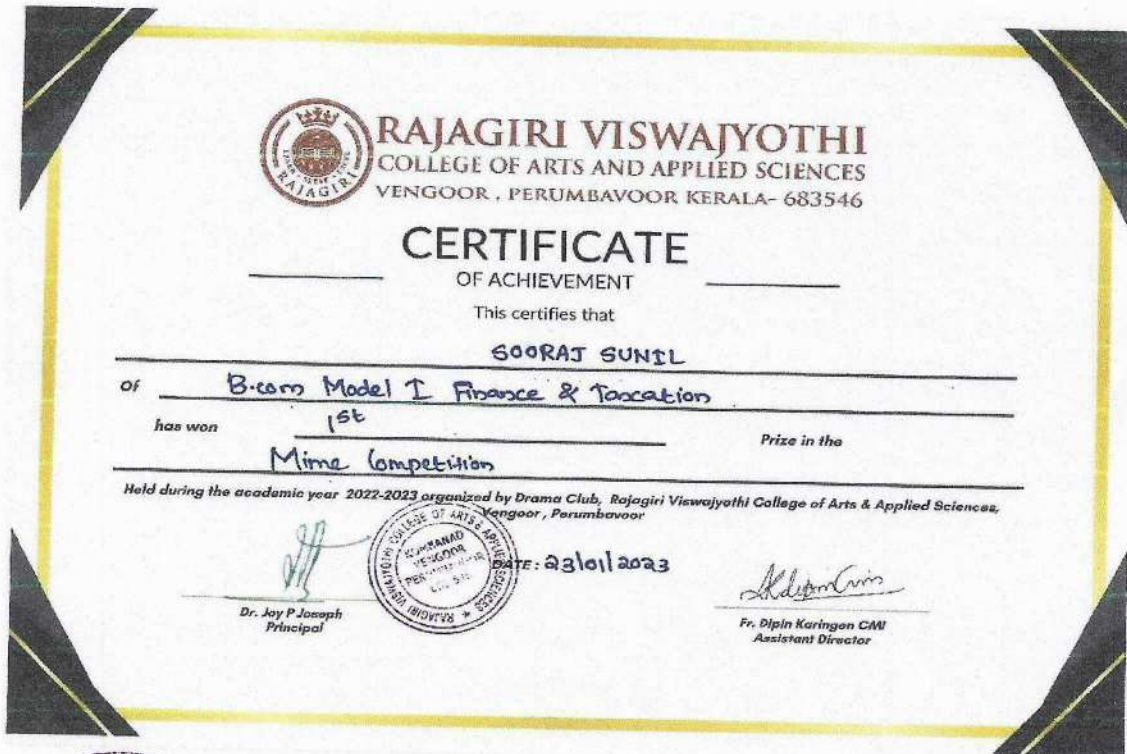 RAJAGIRI VISWAJYOTHI
COLLEGE OF ARTS AND APPLIED SCIENCES
VENGOOR, PERUMBAVOOR KERALA- 683546
RAJAGIRI
CERTIFICATE
OF ACHIEVEMENT
This certifies that
SOORAJ SUNIL
Of B.com Model I Finance & Taxation
has won 1st Prize in the
Mime Competition
Held during the academic year 2022-2023 organized by Drama Club, Rajagiri Viswajyothi College of Arts & Applied Sciences,
Vengoor, Perumbavoor
RAJAGIRI VISWAJYOTHI COLLEGE OF ARTS & APPLIED SCIENCES
VENGOOR
DATE: 23/01/2023
Dr. Joy P Joseph
Principal
Fr. Dipin Karingen CMI
Assistant Director